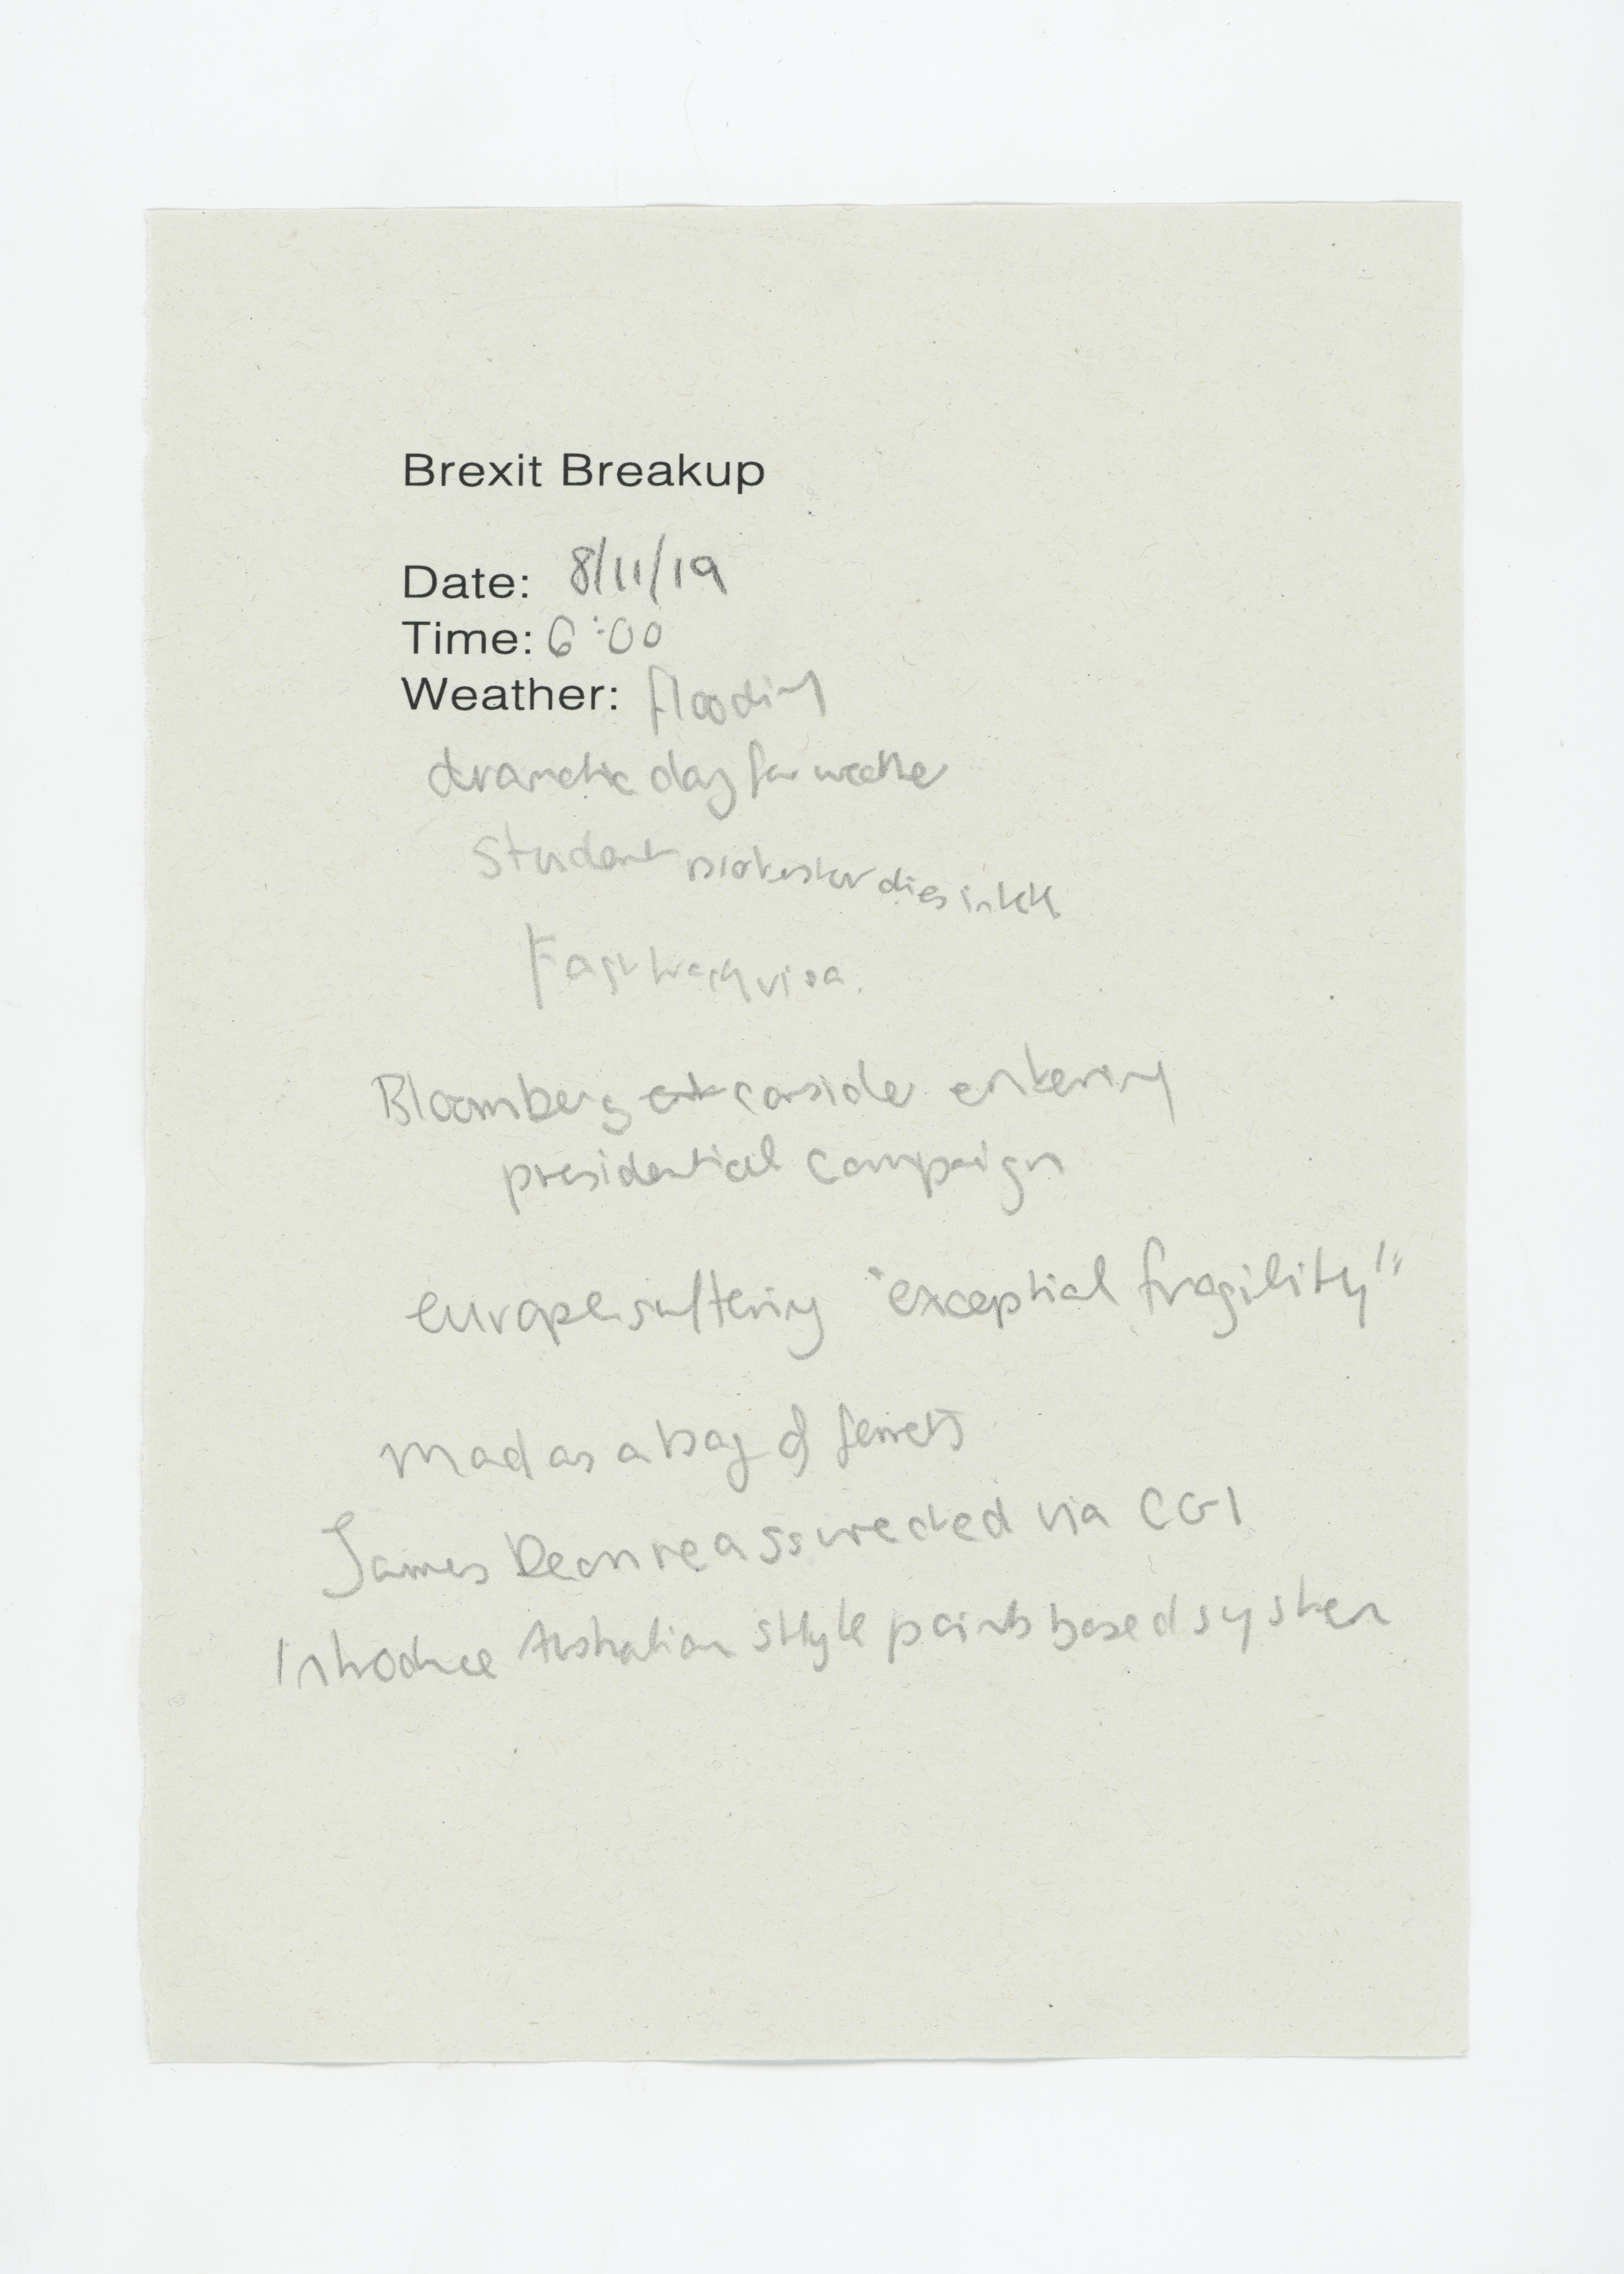 Brexit Breakup
Date: 8/11/19
Time: 6:00
Weather: flooding
dramatic day for weather
Student protestor dies in HK
Fast track visa.
Bloomberg consider entering
presidential campaign
europe suffering "exceptial fragility"
Mad as a bag of ferrets
James Dean reassurected via CGI
Introduce Australian style points based system